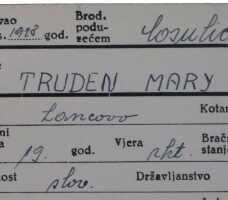 vao Brod.
s. 1928 god. podu- Cosulic
zećem
TRUDEN MARY
Lancovo Kotar
ni Brač
a 19. god. Vjera rkt. stanje
ost slov. Državljanstvo